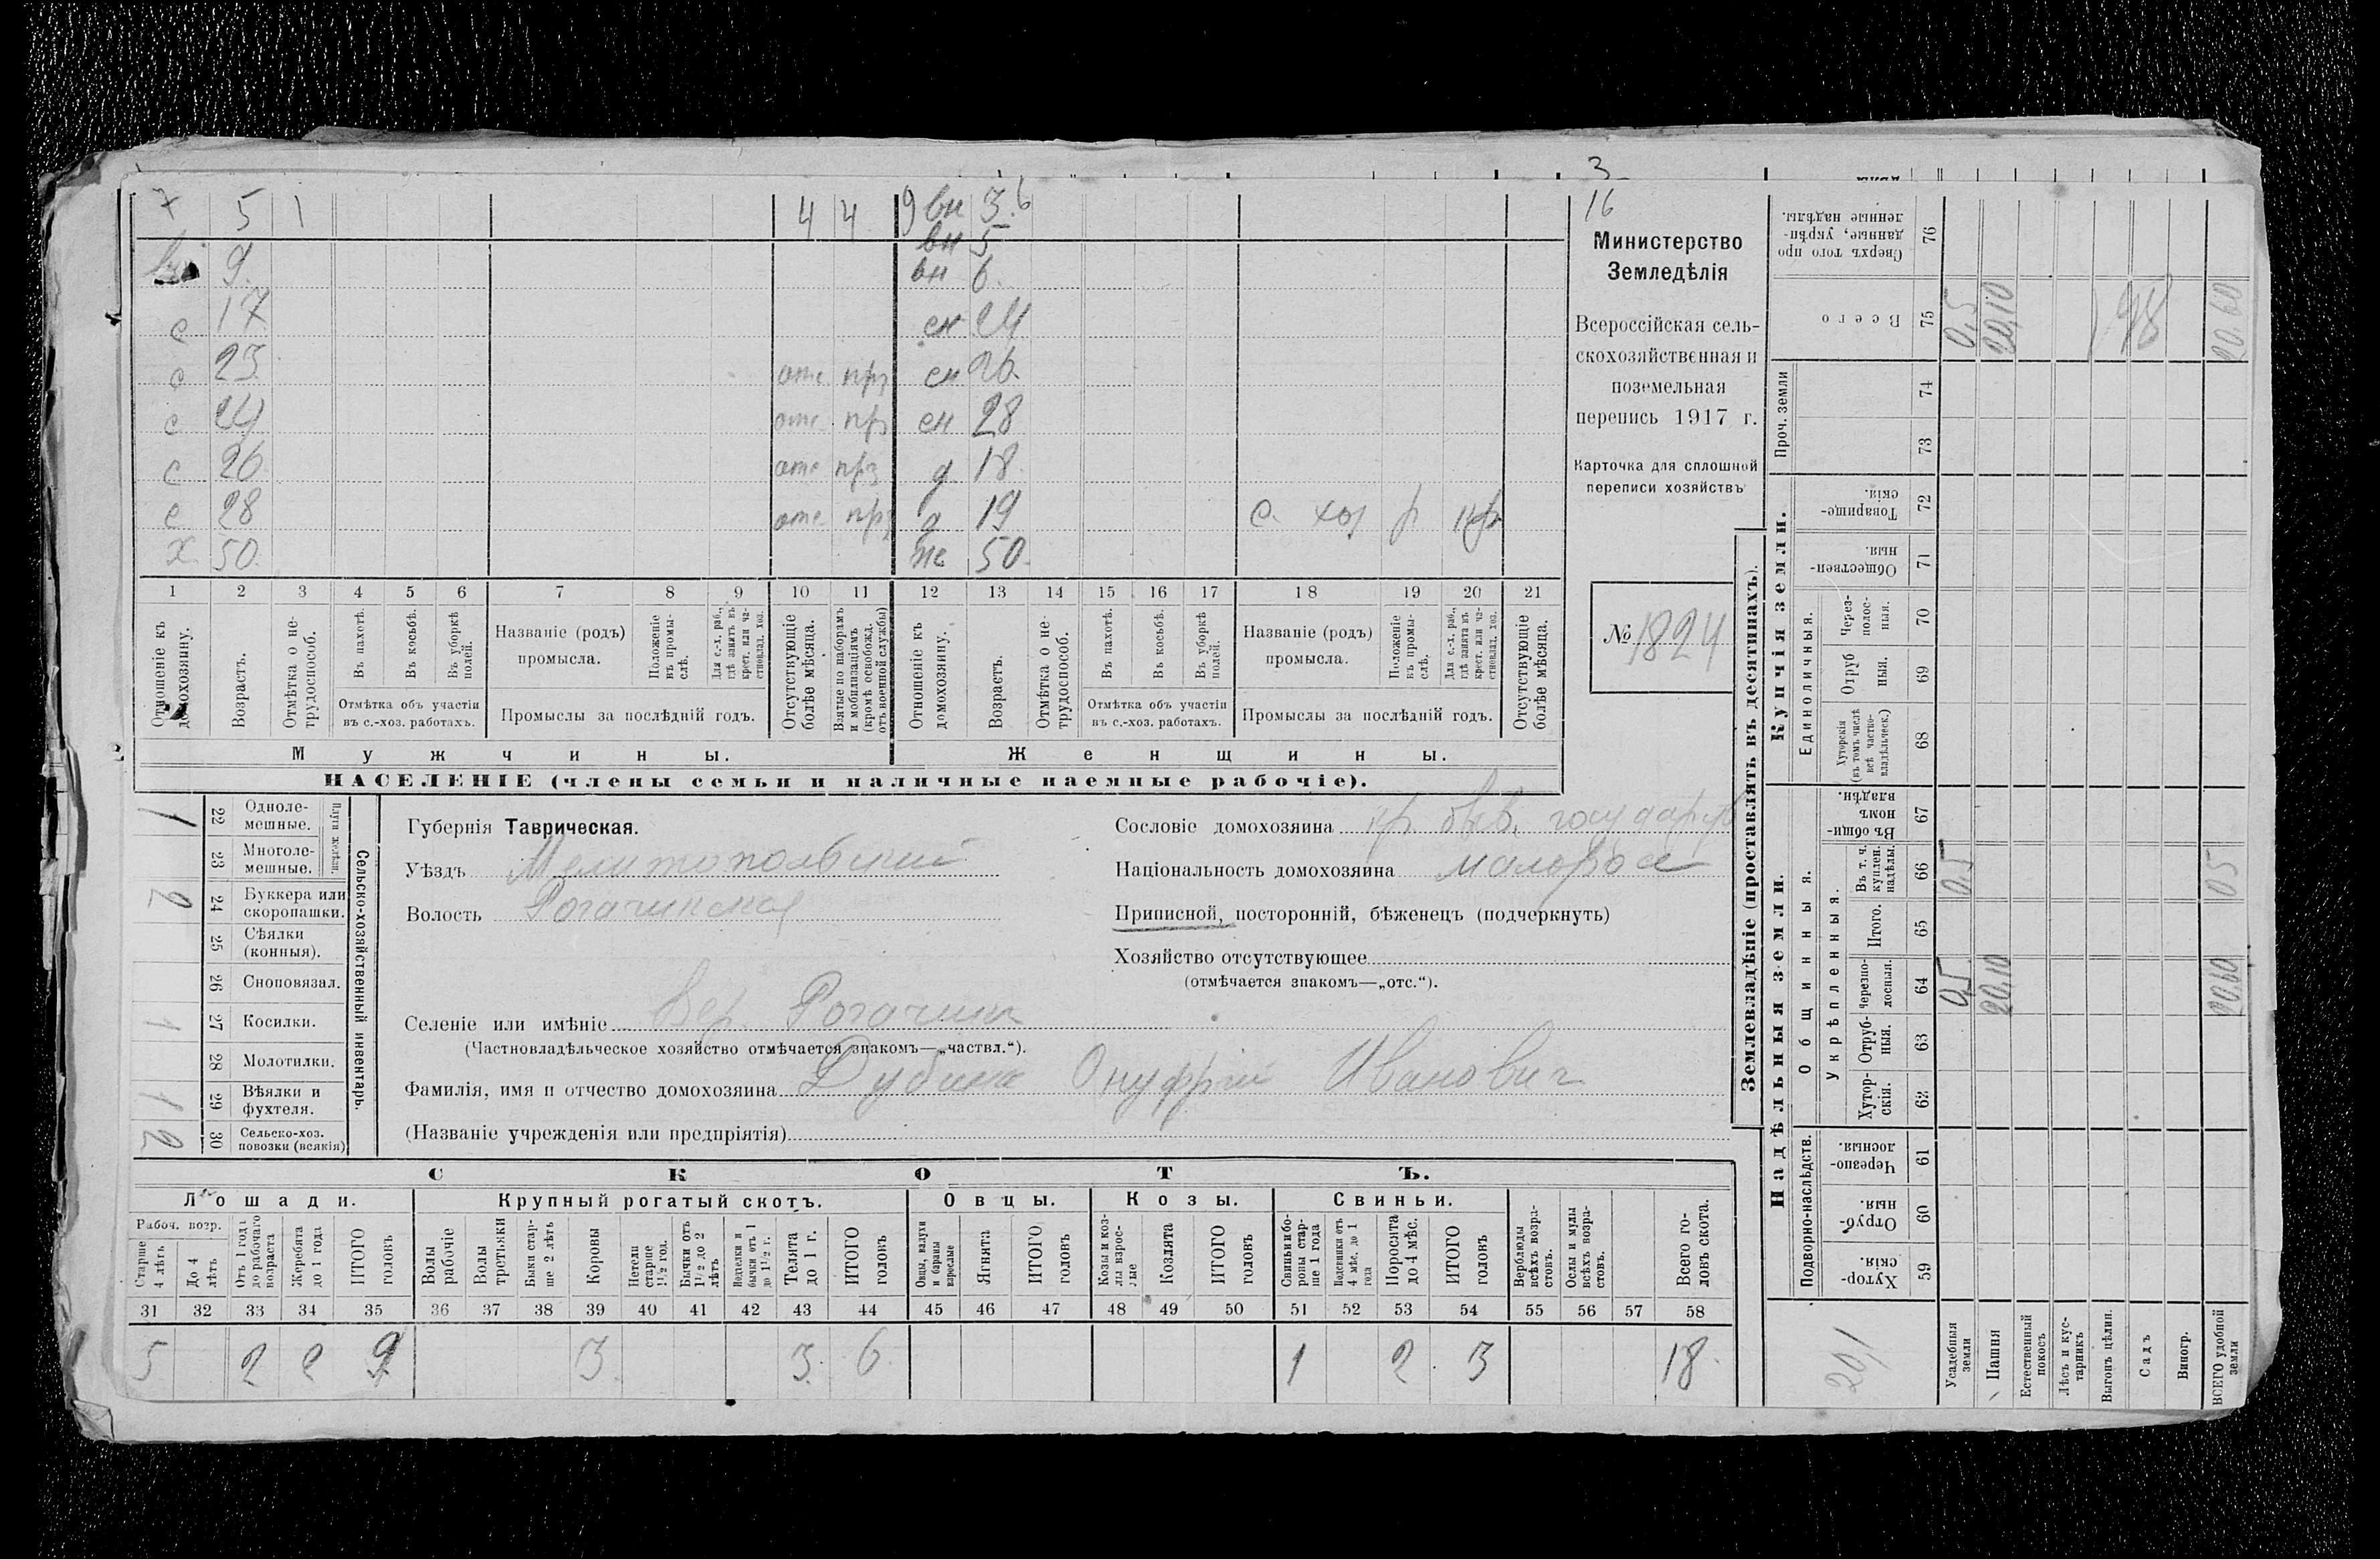 3
16
7 5 1 4 4 9 вн 3.6
вн 5
9. вн 6.
с 17 сн 24
с 23 отс. прз сн 26.
с 24 отс. прз сн 28
с 26 отс прз д 18.
с 28 отс прз д 19 с. хоз р кр
х 50. же 50.
1 2 3 4 5 6 7 8 9 10 11 12 13 14 15 16 17 18 19 20 21
Отношеніе къ домохозяину.
Возрастъ.
Отмѣтка о не-трудоспособ.
Въ пахотѣ.
Въ косьбѣ.
Въ уборкѣ полей.
Отмѣтка объ участіи въ с.-хоз. работахъ.
Названіе (родъ) промысла.
Положеніе въ промы-слѣ.
Для с.-х. раб., гдѣ занятъ въ крест. или ча-стновлад. хоз.
Промыслы за послѣдній годъ.
Отсутствующіе болѣе мѣсяца.
Взятые по наборамъ и мобилизаціямъ (кромѣ освобожд. отъ военной службы)
Отношеніе къ домохозяину.
Возрастъ.
Отмѣтка о не-трудоспособ.
Въ пахотѣ.
Въ косьбѣ.
Въ уборкѣ полей.
Отмѣтка объ участіи въ с.-хоз. работахъ.
Названіе (родъ) промысла.
Положеніе въ промы-слѣ.
Для с.-х. раб., гдѣ занята въ крест. или ча-стновлад. хоз.
Промыслы за послѣдній годъ.
Отсутствующіе болѣе мѣсяца.
Мужчины. Женщины.
НАСЕЛЕНІЕ (члены семьи и наличные наемные рабочіе).
Министерство
Земледѣлія
Всероссійская сель-
скохозяйственная и
поземельная
перепись 1917 г.
Карточка для сплошной
переписи хозяйствъ
№ 1824
1 22 Одноле-мешные.
23 Многоле-мешные.
2 24 Буккера или скоропашки.
25 Сѣялки (конныя).
26 Сноповязал.
1 27 Косилки.
28 Молотилки.
1 29 Вѣялки и фухтеля.
2 30 Сельско-хоз. повозки (всякія)
Сельско-хозяйственный инвентарь.
Губернія Таврическая.
Уѣздъ Мелитопольский
Волость Рогачинская
Селеніе или имѣніе Вер. Рогачик
(Частновладѣльческое хозяйство отмѣчается знакомъ—„частвл.“).
Фамилія, имя и отчество домохозяина Дубина Онуфрий Иванович
(Названіе учрежденія или предпріятія)
Сословіе домохозяина кр быв. государств
Національность домохозяина малоросс
Приписной, посторонній, бѣженецъ (подчеркнуть)
Хозяйство отсутствующее
(отмѣчается знакомъ—„отс.“).
СКОТЪ.
Лошади. Крупный рогатый скотъ. Овцы. Козы. Свиньи.
Рабоч. возр.
Старше 4 лѣтъ
До 4 лѣтъ
Отъ 1 года до рабочаго возраста
Жеребята до 1 года
ИТОГО головъ
Волы рабочіе
Волы третьяки
Быки стар-ше 2 лѣтъ
Коровы
Нетели старше 1½ год.
Бычки отъ 1½ до 2 лѣтъ
Подтелки и бычки отъ 1 до 1½ г.
Телята до 1 г.
ИТОГО головъ
Овцы, валухи и бараны взрослые
Ягнята
ИТОГО головъ
Козы и коз-лы взрос-лые
Козлята
ИТОГО головъ
Свиньи и бо-ровы стар-ше 1 года
Подсвинки отъ 4 мѣс. до 1 года
Поросята до 4 мѣс.
ИТОГО головъ
Верблюды всѣхъ возра-стовъ.
Ослы и мулы всѣхъ возра-стовъ.
Всего го-ловъ скота.
31 32 33 34 35 36 37 38 39 40 41 42 43 44 45 46 47 48 49 50 51 52 53 54 55 56 57 58
5 2 2 9 3 3. 6 1 2. 3 18.
Землевладѣніе (проставлять въ десятинахъ).
Надѣльныя земли. Купчія земли. Проч. земли
Подворно-наслѣдств.
Общинныя.
Укрѣпленныя.
Единоличныя.
Сверхъ того про данные, укрѣп-ленные надѣлы. 76
Всего 75 0,5 20,10 20.60
74
73
Товарище-скія. 72
Обществен-ныя. 71
Через-полос-ныя. 70
Отруб ныя. 69
Хуторскія (въ томъ числѣ всѣ частно-владѣльческ.) 68
Въ общи-номъ владѣн. 67
Въ т. ч. куплен. надѣлы. 66 0.5 05
Итого. 65
Черезпо-лосныя. 64 0,5 20,10 20.60
Отруб-ныя. 63
Хутор-скія. 62
Черезпо-лосныя. 61
Отруб-ныя. 60
Хутор-скія. 59
Усадебныя земли
Пашня
Естественный покосъ
Лѣсъ и кус-тарникъ
Выгонъ цѣлин.
Садъ
Виногр.
ВСЕГО удобной земли